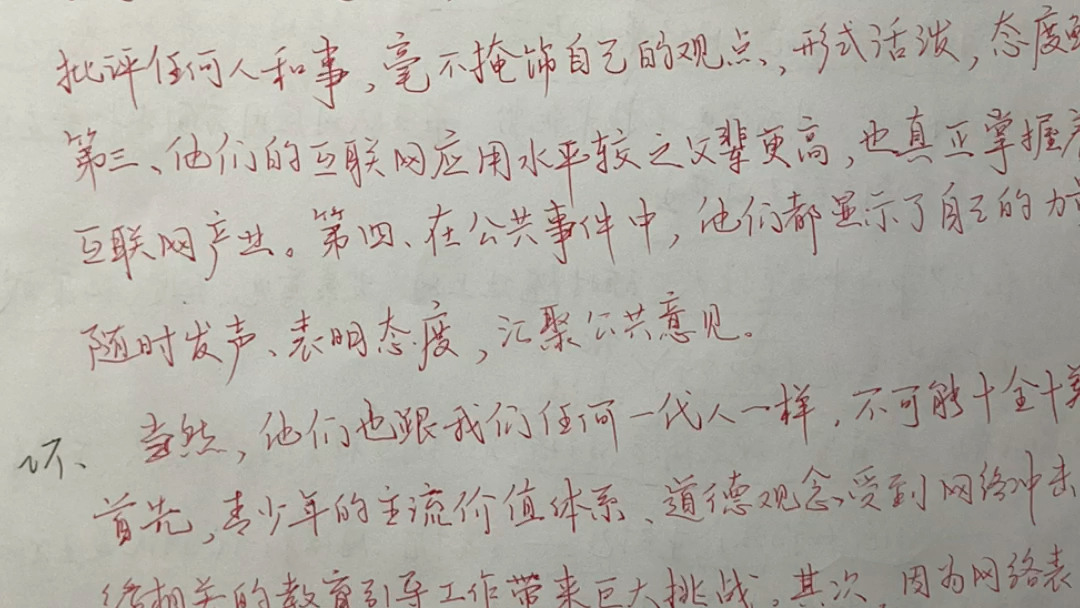 批评任何人和事,毫不掩饰自己的观点,形式活泼,态度
第三、他们的互联网应用水平较之父辈更高,也真正掌握
互联网产业。第四、在公共事件中,他们都显示了自己的力
随时发声、表明态度,汇聚公共意见。
坏、当然,他们也跟我们任何一代人一样,不可能十全十美
首先,青少年的主流价值体系、道德观念受到网络冲击
给相关的教育引导工作带来巨大挑战。其次,因为网络表